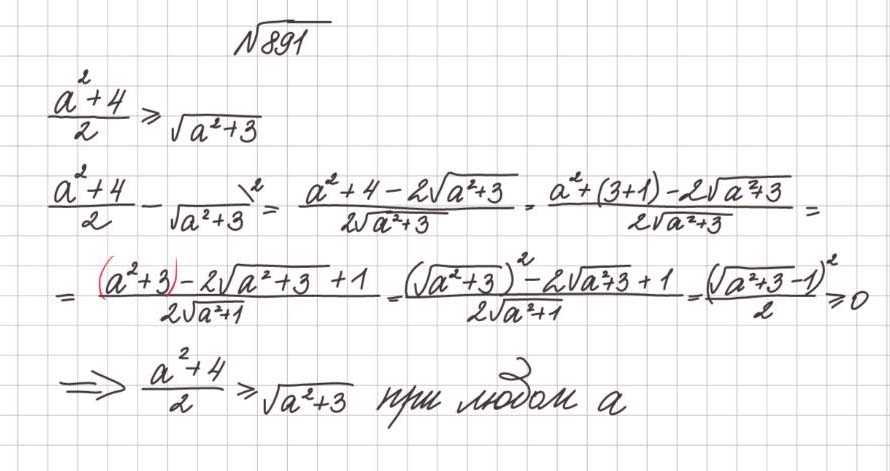 №891
(a²+4)/2 ≥ √(a²+3)
(a²+4)/2 − √(a²+3) \² = (a²+4−2√(a²+3))/(2√(a²+3)) = (a²+(3+1)−2√(a²+3))/(2√(a²+3)) =
= ((a²+3)−2√(a²+3)+1)/(2√(a²+1)) = ((√(a²+3))²−2√(a²+3)+1)/(2√(a²+1)) = (√(a²+3)−1)²/2 ≥ 0
⟹ (a²+4)/2 ≥ √(a²+3) при любом a